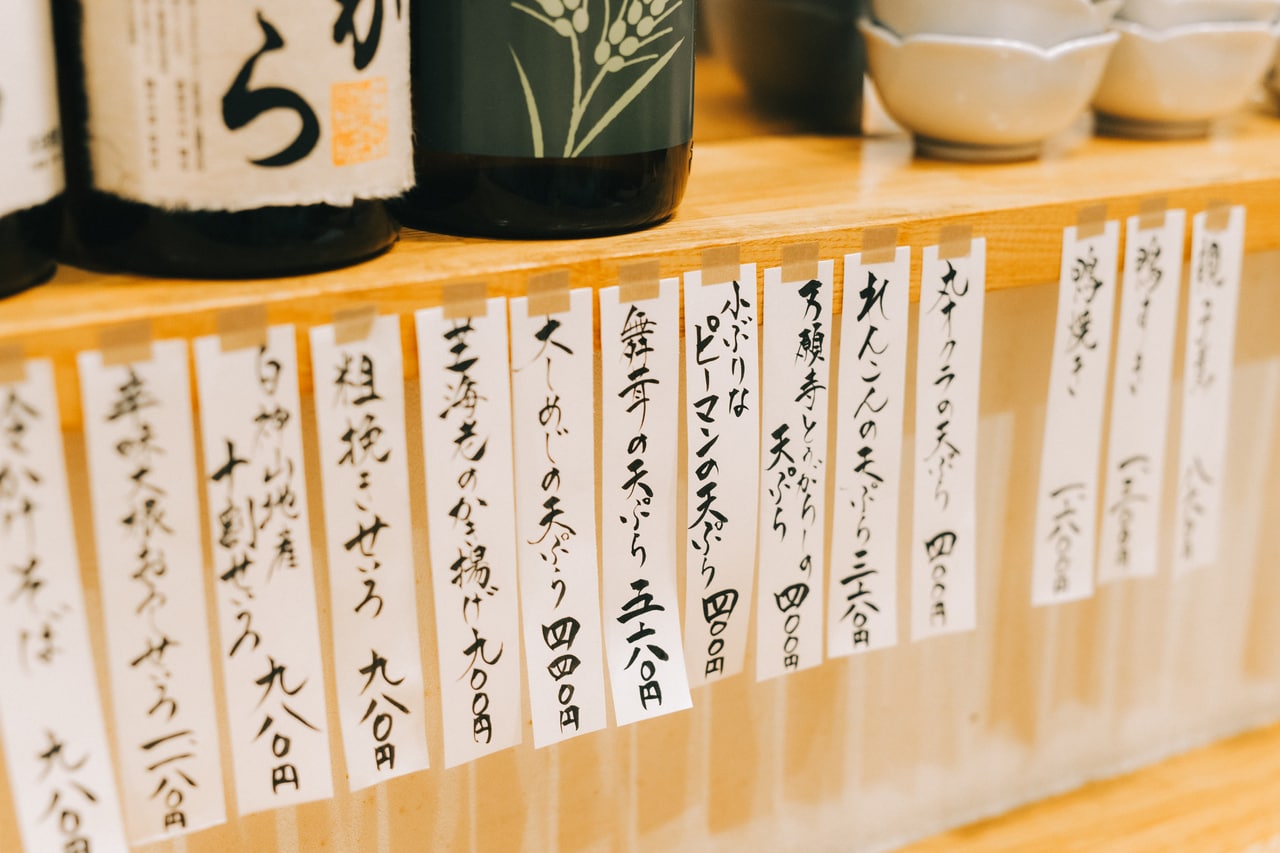 ら
鴨焼き
丸オクラの天ぷら 四〇〇円
れんこんの天ぷら 三六〇円
万願寺とうがらしの
天ぷら 四〇〇円
小ぶりな
ピーマンの天ぷら 四〇〇円
舞茸の天ぷら 五六〇円
大しめじの天ぷら 四四〇円
芝海老のかき揚げ 九〇〇円
粗挽きせいろ 九八〇円
白神山地産
十割せいろ 九八〇円
辛味大根おろしせいろ 一、一八〇円
かけそば 九八〇円